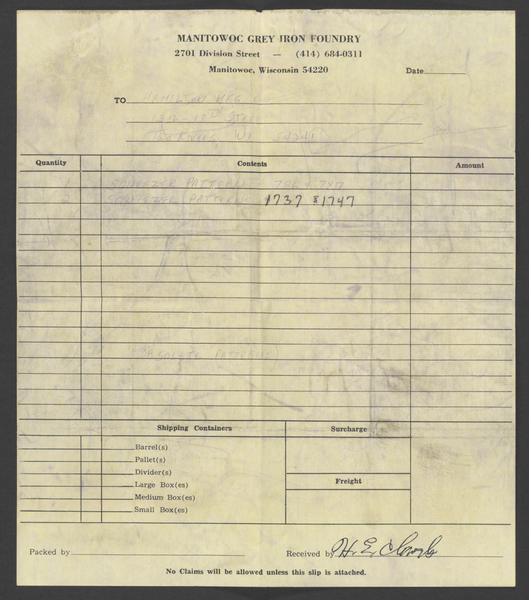 MANITOWOC GREY IRON FOUNDRY
2701 Division Street — (414) 684-0311
Manitowoc, Wisconsin 54220
Date
TO HAMILTON MFG CO
Quantity Contents Amount
SQUEEZER PATTERN
SQUEEZER PATTERN 1737 & 1747
OBSOLETE PATTERNS
Shipping Containers Surcharge
Barrel(s)
Pallet(s)
Divider(s)
Large Box(es) Freight
Medium Box(es)
Small Box(es)
Packed by Received by H. E.
No Claims will be allowed unless this slip is attached.